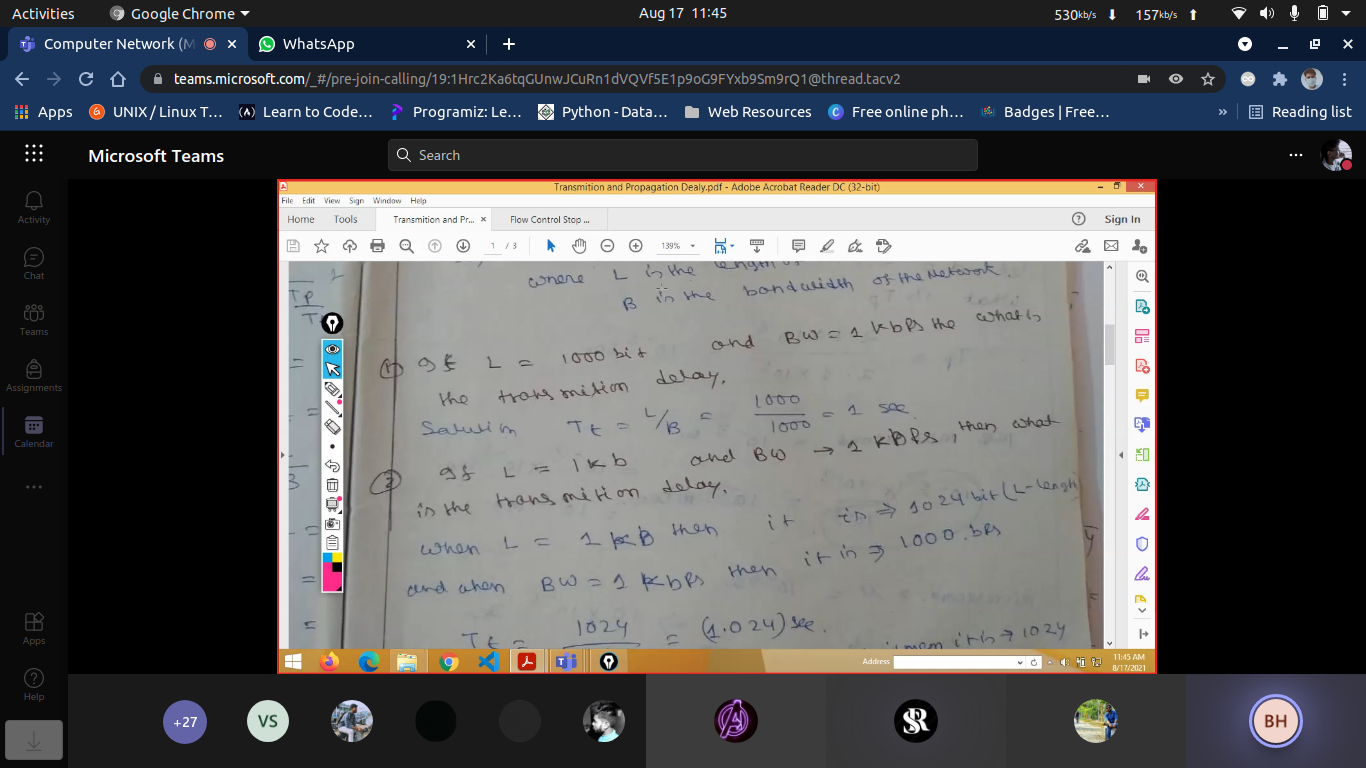 Activities
Google Chrome
Aug 17 11:45
530kb/s
157kb/s
Computer Network (M
WhatsApp
teams.microsoft.com/_#/pre-join-calling/19:1Hrc2Ka6tqGUnwJCuRn1dVQVf5E1p9oG9FYxb9Sm9rQ1@thread.tacv2
Apps
UNIX / Linux T...
Learn to Code...
Programiz: Le...
Python - Data...
Web Resources
Free online ph...
Badges | Free...
»
Reading list
Microsoft Teams
Search
Activity
Chat
Teams
Assignments
Calendar
Apps
Help
Transmition and Propagation Dealy.pdf - Adobe Acrobat Reader DC (32-bit)
File Edit View Sign Window Help
Home
Tools
Transmition and Pr...
Flow Control Stop ...
Sign In
1 / 3
139%
where L is the length of
B is the bandwidth of the Network.
① If L = 1000 bit and BW = 1 Kbps the what is
the transmition delay.
Solution Tt = L/B = 1000/1000 = 1 sec
② If L = 1kb and BW → 1 KBPs, then what
is the transmition delay.
when L = 1 KB then it is ⇒ 1024 bit (L-length
and when BW = 1 Kbps then it is ⇒ 1000 bps
Tt = 1024 = (1.024) sec.
it is → 1024
Tp
T
1
3
Address
11:45 AM
8/17/2021
+27
VS
A
SR
BH